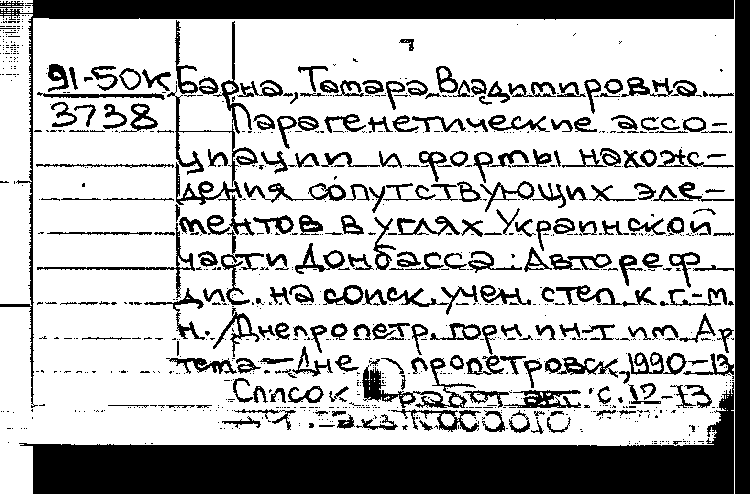 91-50К Барна, Тамара Владимировна.
3738 Парагенетические ассо-
циации и формы нахож-
дения сопутствующих эле-
ментов в углях Украинской
части Донбасса : Автореф.
дис. на соиск. учен. степ. к. г.-м.
н. / Днепропетр. горн. ин-т им. Ар
тема — Дне пропетровск, 1990 - 13
Список работ авт. : с. 12-13